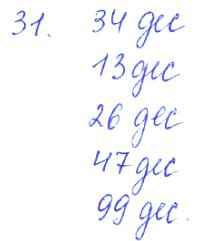 31. 34 дес
13 дес
26 дес
47 дес
99 дес.